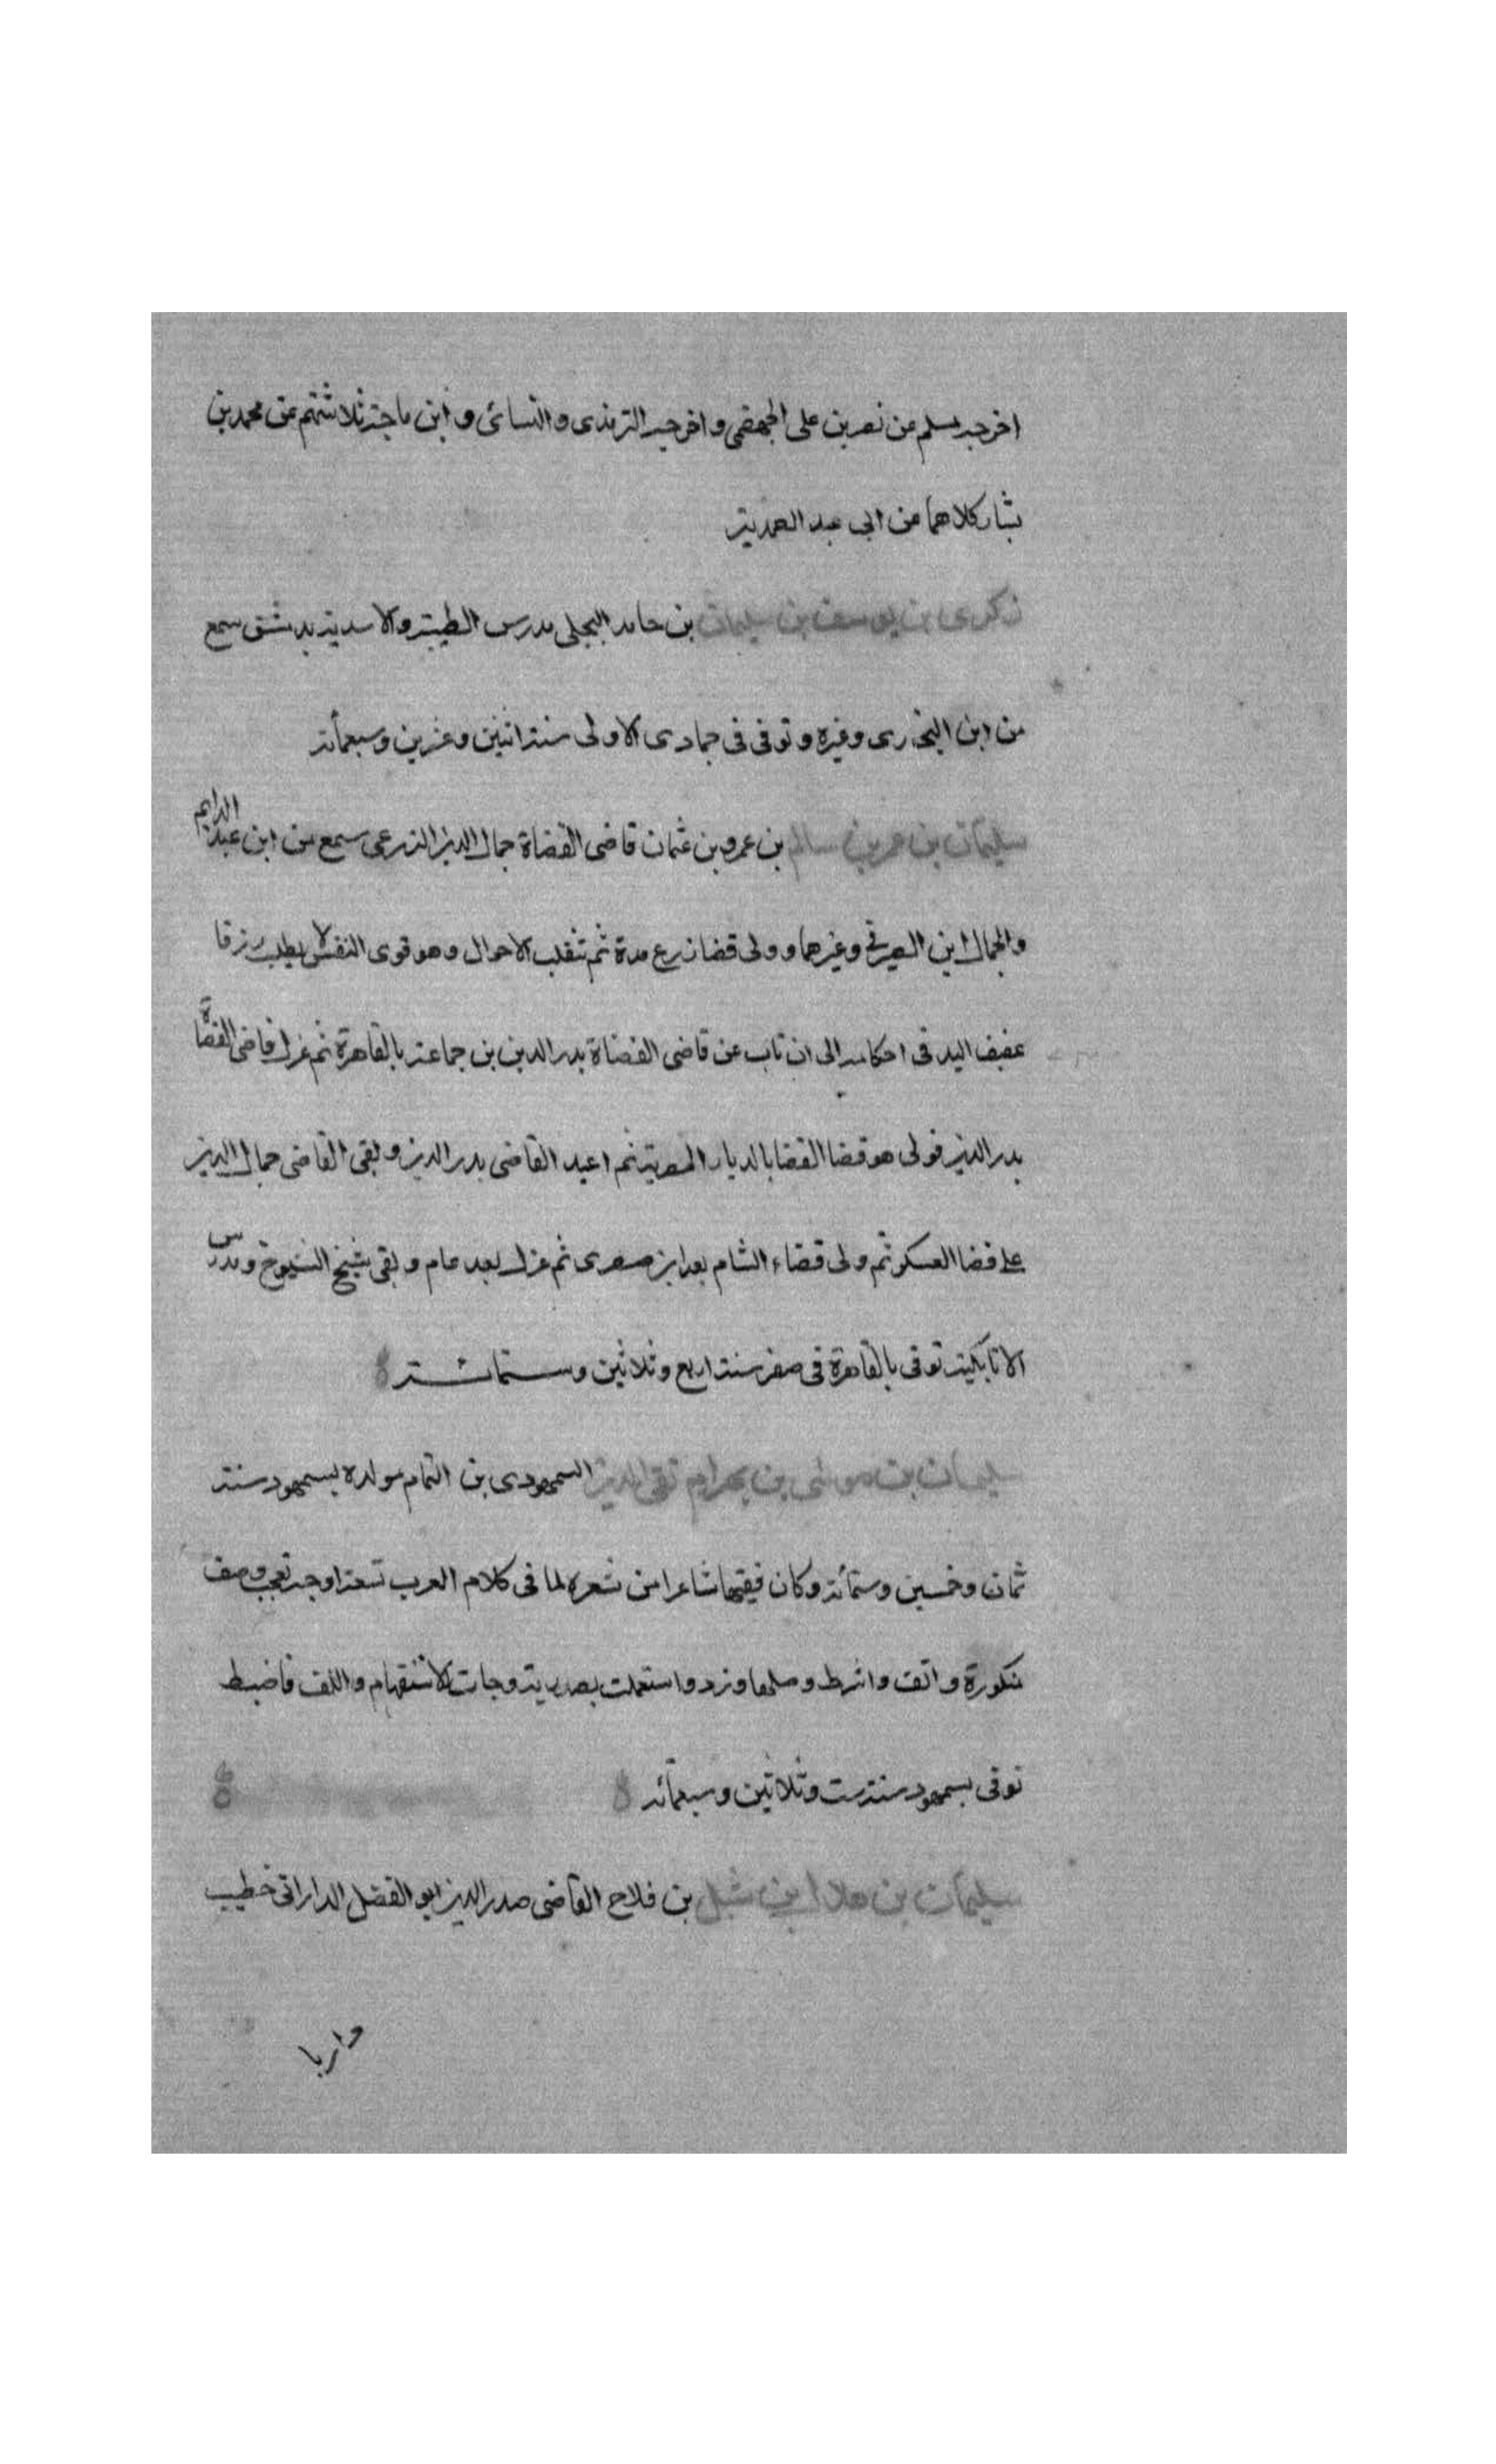 اخرجه مسلم عن نصر بن على الجهضمى واخرجه الترمذى والنسائى وابن ماجة ثلاثتهم عن محمد بن
بشار كلاهما عن ابى عبد الصمد به
زكرى بن يوسف بن سليمان بن حامد البجلى مدرس الطيبة والاسدية بدمشق سمع
من ابن البخارى وغيره وتوفى فى جمادى الاولى سنة اثنين وعشرين وسبعمأئة
سليمان بن عمر بن سالم بن عمرو بن عثمان قاضى القضاة جمال الدين الزرعى سمع من ابن عبد الدايم
والجمال ابن الصيرفى وغيرهما وولى قضا زرع مدة ثم تنقلب الاحوال وهو قوى النفس لا يطلب رزقا
عفيف اليد فى احكامه الى ان ناب عن قاضى القضاة بدر الدين بن جماعة بالقاهرة ثم عزل قاضى القضاة
بدر الدين فولى هو قضا القضا بالديار المصرية ثم اعيد القاضى بدر الدين وبقى القاضى جمال الدين
على قضا العسكر ثم ولى قضاء الشام بعد ابن صصرى ثم عزل بعد عام وبقى شيخ الشيوخ ومدرس
الاتابكية توفى بالقاهرة فى صفر سنة اربع وثلاثين وستمائة
سليمان بن موسى بن بهرام تقى الدين السمهودى بن الهمام مولده بسمهود سنة
ثمان وخمسين وستمأئة وكان فقيها شاعرا من شعره لما فى كلام العرب تسعة اوجه تعجب وصف
منكورة وانف واشرط وصلها وزد واستعملت مصدرية وجات الاستفهام والكف فاضبط
توفى بسمهود سنة ست وثلاثين وسبعمأئة
سليمان بن هلال بن شبل بن فلاح القاضى صدر الدين ابو الفضل الدارانى خطيب
داريا